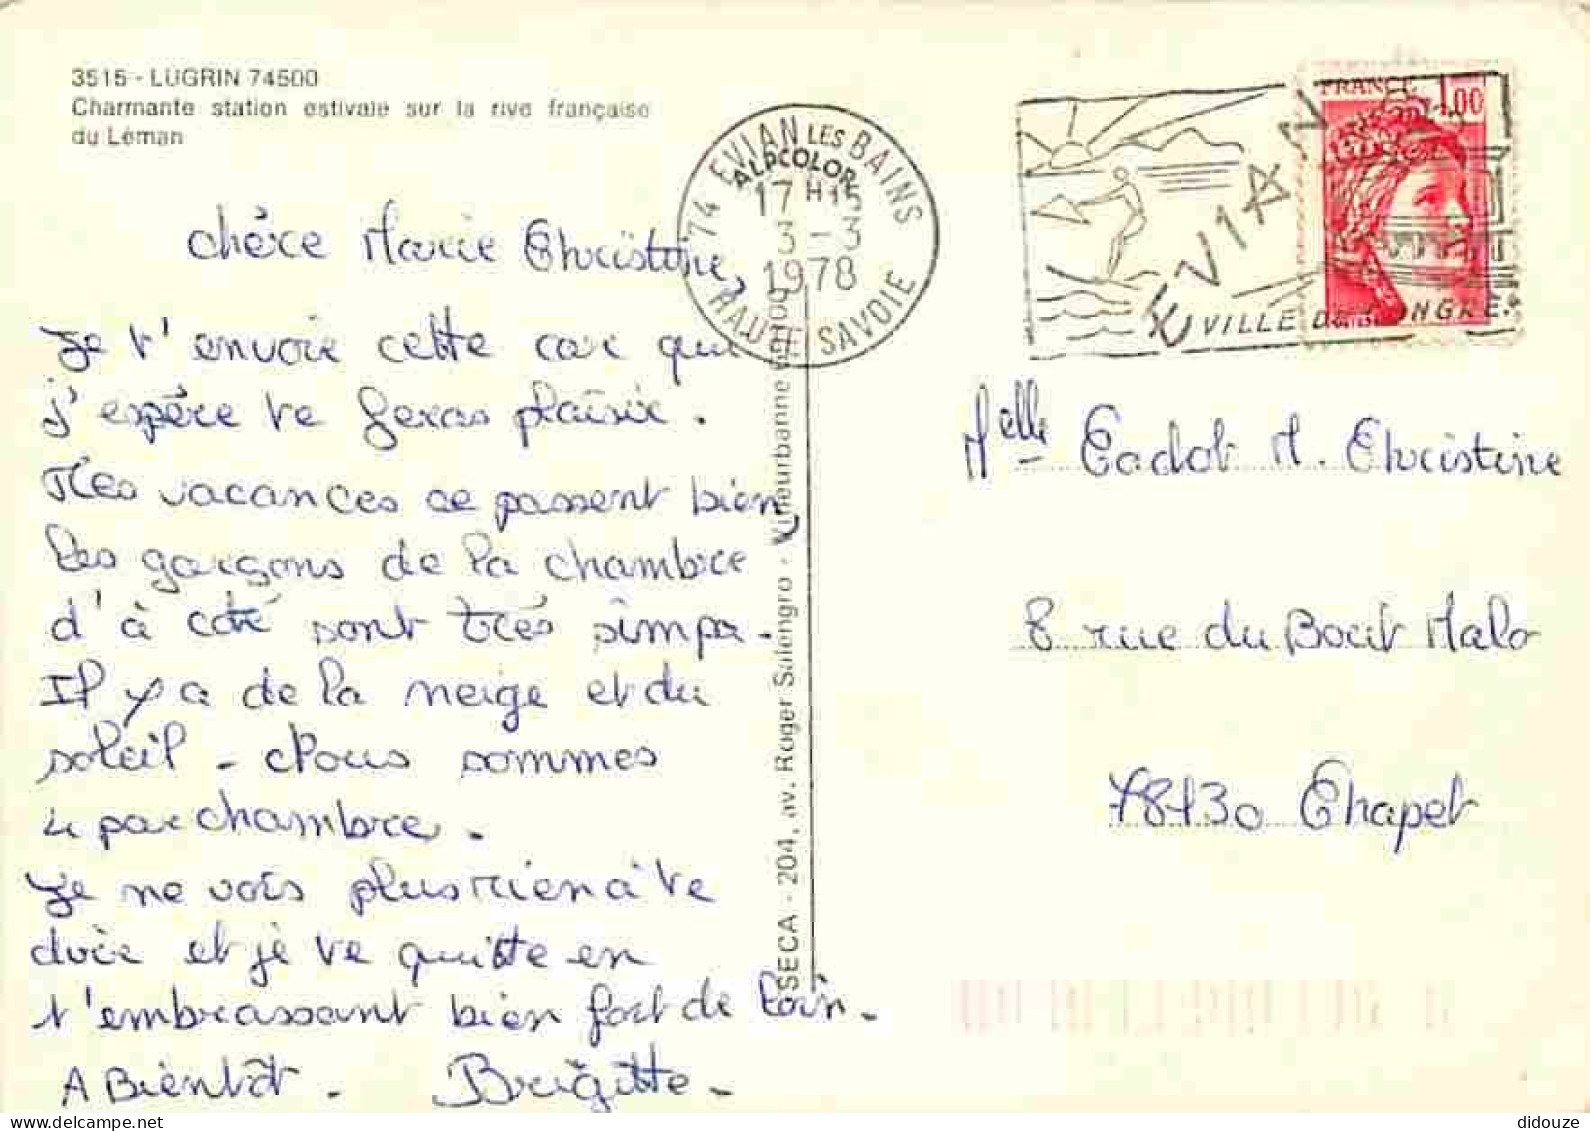 3515 - LUGRIN 74500
Charmante station estivale sur la rive française
du Léman
74 EVIAN LES BAINS
ALPCOLOR
17 H15
3-3
1978
HAUTE SAVOIE
EVIAN
VILLE DE CONGRÈS
FRANCE 1,00
chère Marie Christine,
Je t'envoie cette car qui
j'espère te feras plaisir.
Mes vacances se passent bien,
les garçons de la chambre
d'à coté sont très simpa.
Il y a de la neige et du
soleil - Nous sommes
4 par chambre.
Je ne vois plus rien à te
dire et je te quitte en
t'embrassant bien fort de loin.
A Bientôt - Brigitte -
SECA - 204, av. Roger Salengro - Villeurbanne
Melle Cadot M. Christine
8 rue du Bout Malo
78130 Chapet
didouze